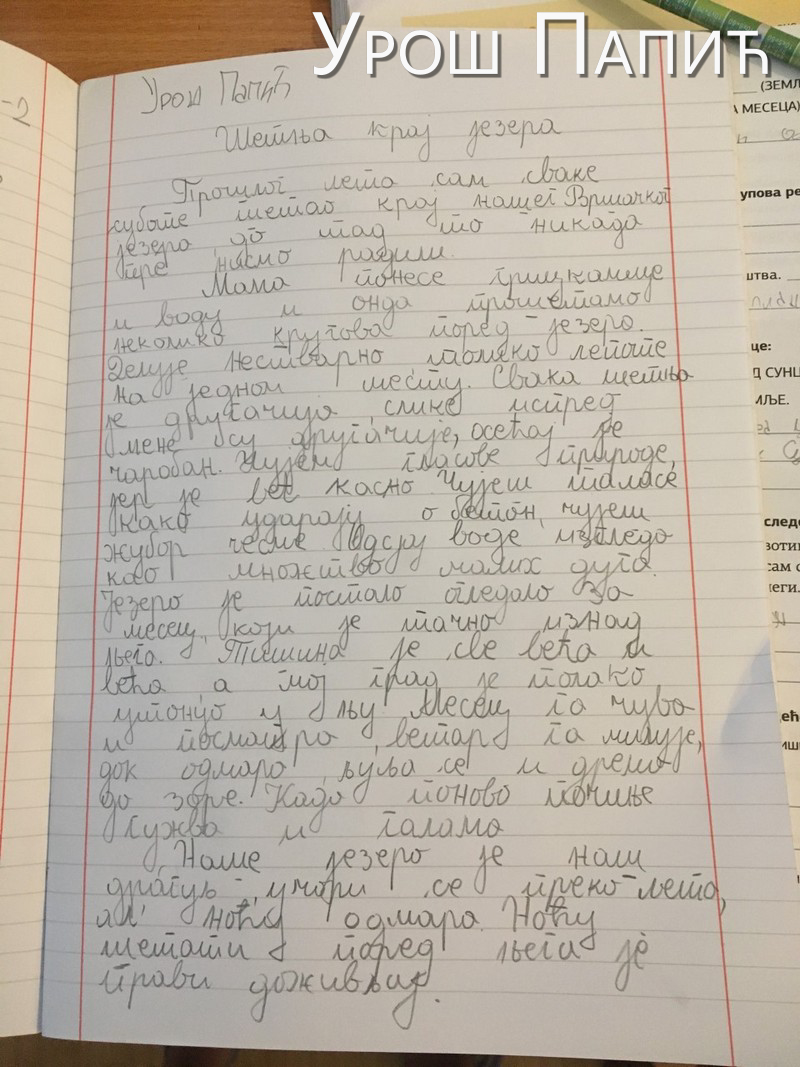 Урош Папић
-2
Урош Папић
Шетња крај језера
Прошлог лета сам сваке
суботе шетао крај нашег Вршачког
језера, до тад то никада
пре нисмо радили.
Мама понесе грицкалице
и воду и онда прошетамо
неколико кругова поред језера.
Делује нестварно толико лепоте
на једном месту. Свака шетња
је другачија, слике испред
мене су другачије, осећај је
чаробан. Чујем гласове природе,
јер је већ касно. Чујеш таласе
како ударају о бетон, чујеш
жубор чесме. Одсјај воде изгледа
као множтво малих дуга.
Језеро је постало огледало за
месец, који је тачно изнад
њега. Тишина је све већа и
већа а мој град је полако
утонуо у њу. Месец га чува
и посматра, ветар га милује,
док одмара, љуља се и дрема
до зоре. Када поново почиње
гужва и галама
Наше језеро је наш
драгуљ, умори се преко лета,
ал' ноћу одмара. Ноћу
шетати поред њега је
прави доживљај.
(ЗЕМЉ
А МЕСЕЦА)
упова ре
штва.
це:
Д СУНЦ
МЉЕ.
следе
зотињ
сам с
леги.
ећ